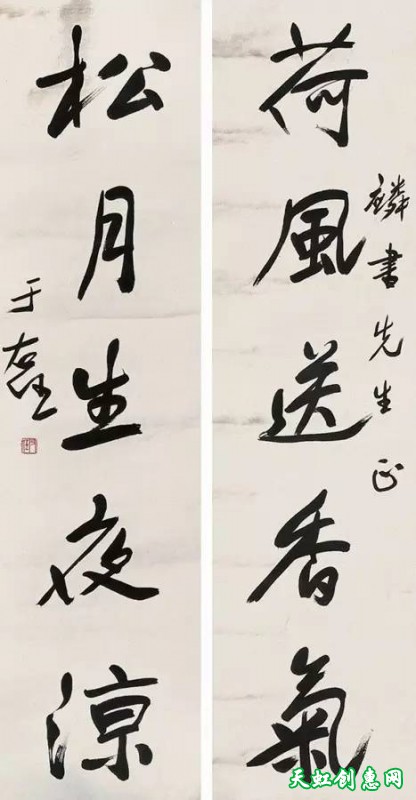 麟書先生正
荷風送香氣
松月生夜涼
于右任
天虹创惠网